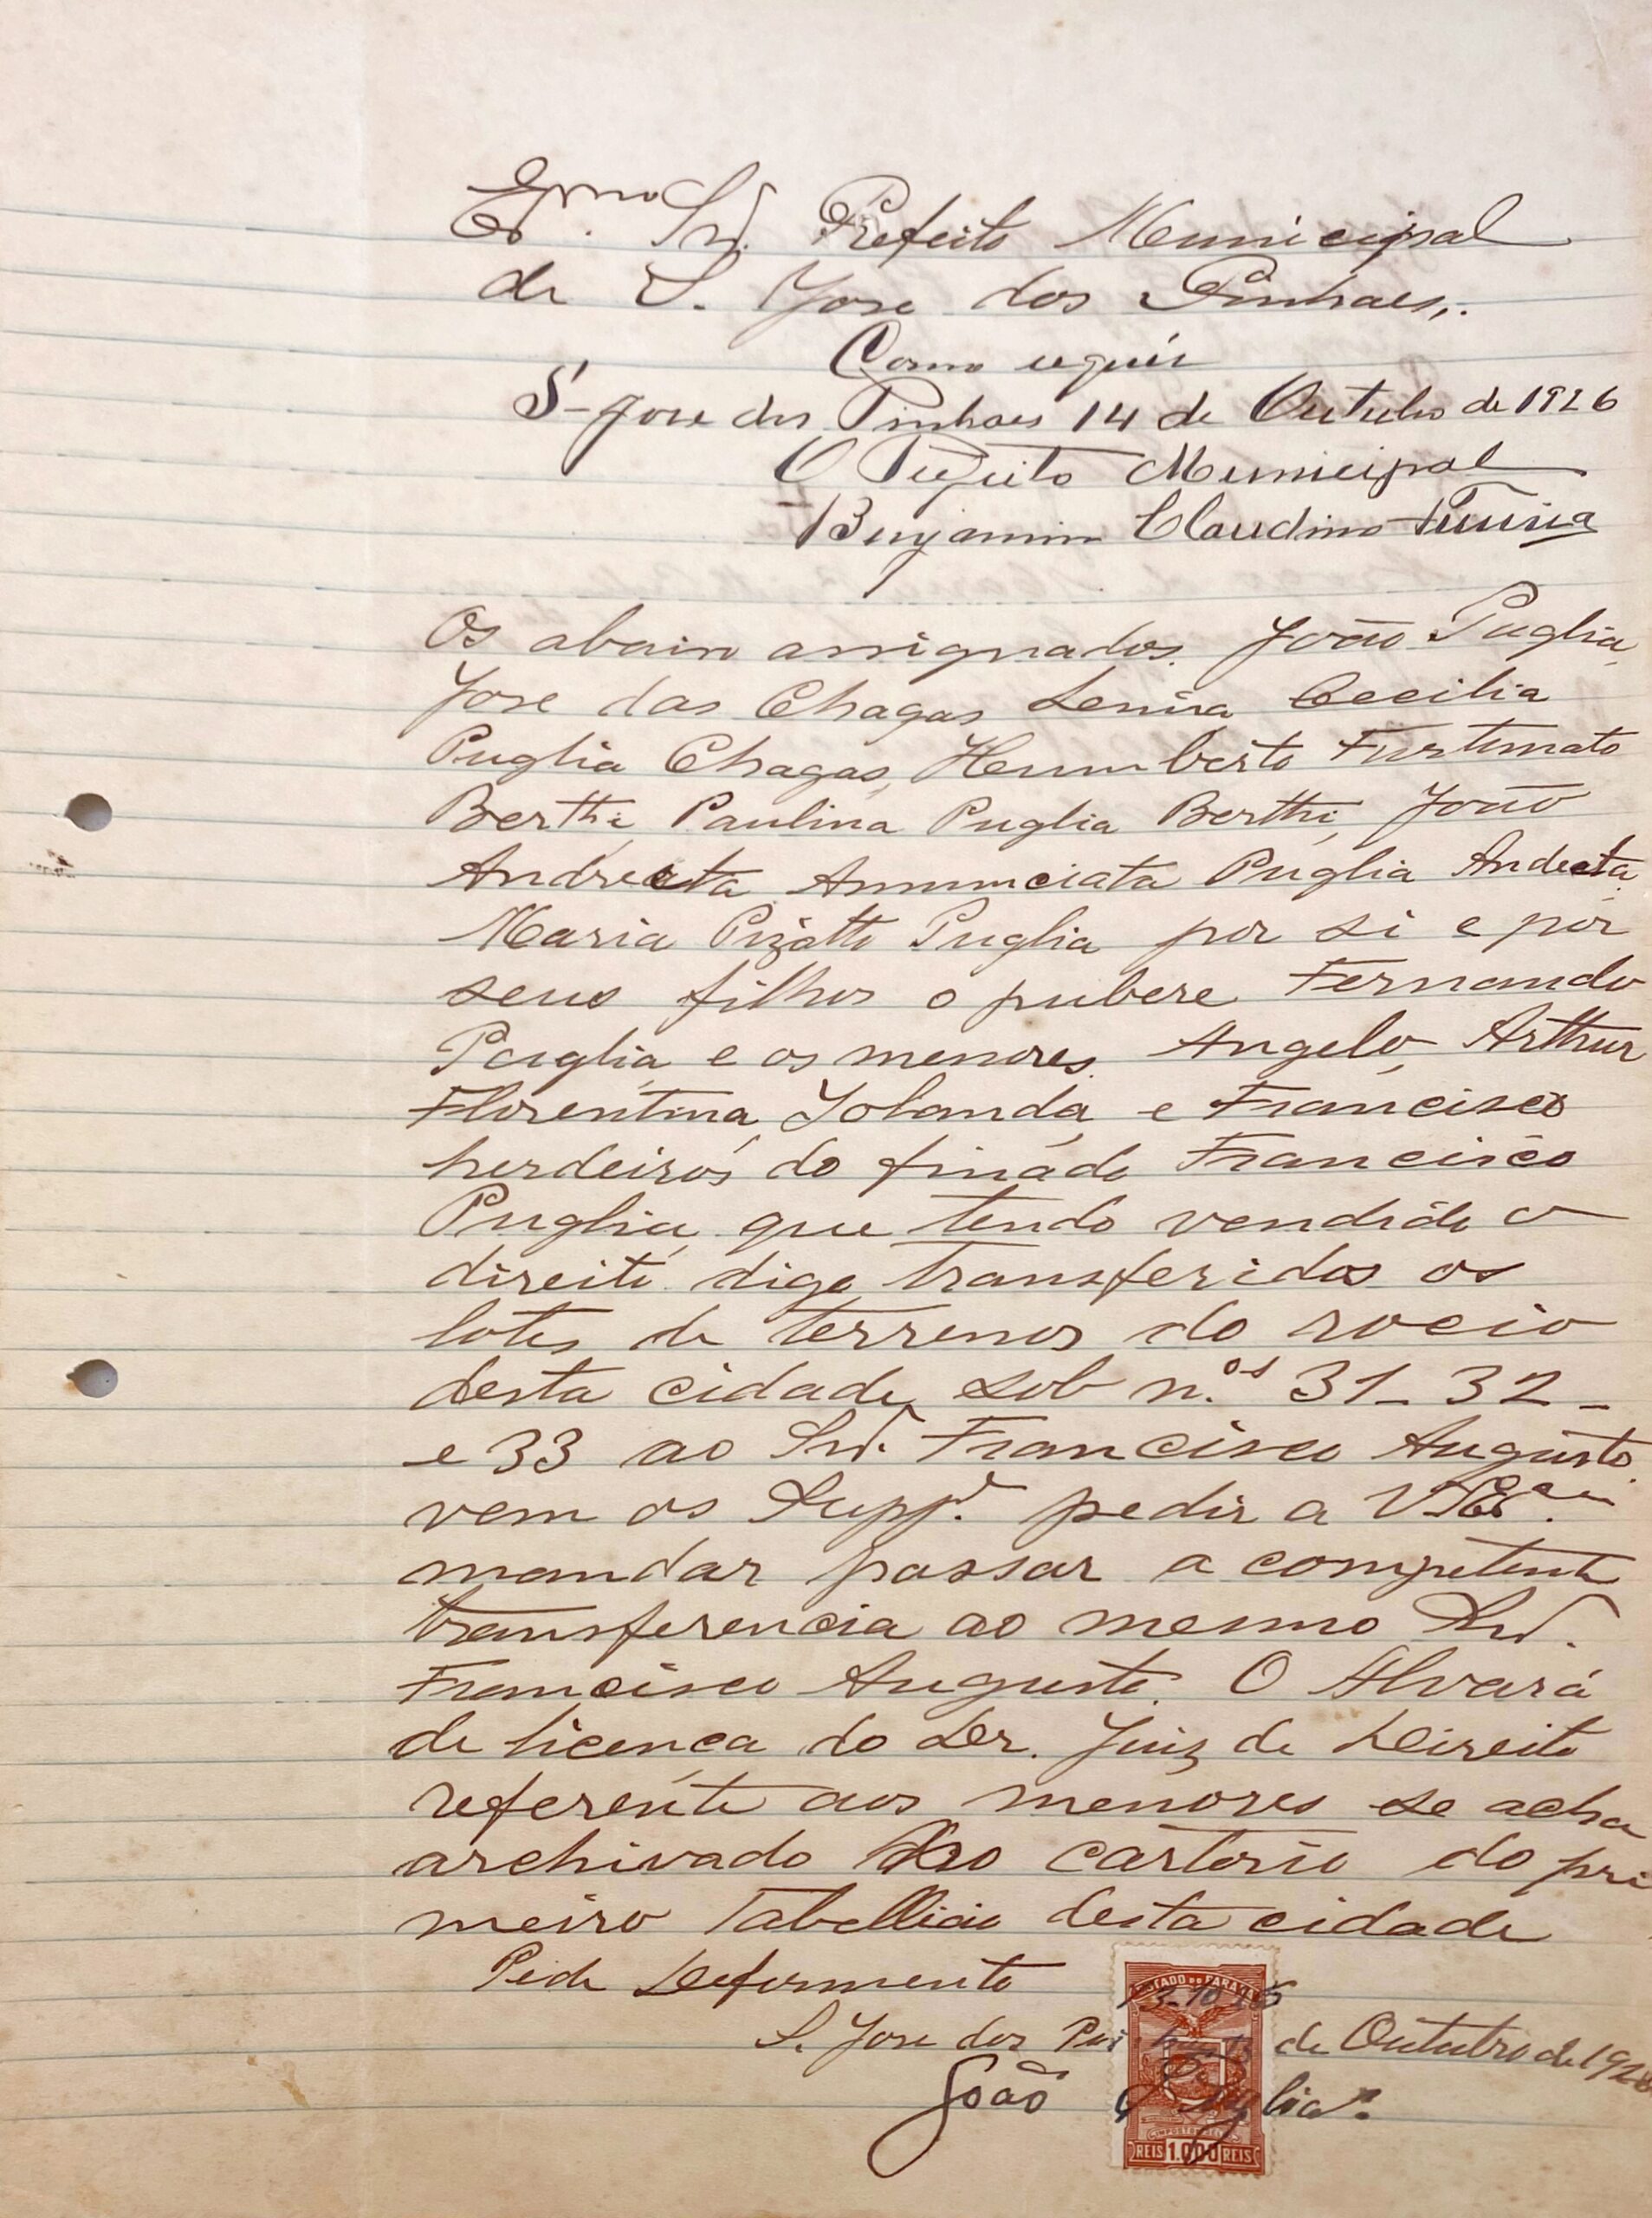 Exmo. Snr. Prefeito Municipal
de S. Jose dos Pinhaes,.
Como
S. Jose dos Pinhaes 14 de Outubro de 1926
O Prefeito Municipal
Benjamin Claudino
Os abaixo assignados. João Puglia,
Jose das Chagas Cecilia
Puglia Chagas, Humberto Furtunato
Berthi, Paulina Puglia Berthi, João
Andreatta Annunciata Puglia Andeeta,
Maria Puglia por si e por
seus filhos o pubere Fernando
Puglia, e os menores. Angelo, Arthur
Florentina, Yolanda, e Francisco
herdeiros do finado Francisco
Puglia, que tendo vendido o
direito digo transferidos os
lotes de terrenos do rocio
desta cidade, sob n.os 31 - 32 -
e 33 ao Snr. Francisco Augusto.
vem os Supp.r pedir a V Ex.cia
mandar passar a competente
transferencia ao mesmo Snr.
Francisco Augusto. O Alvará
de licença do Dr. Juiz de Direito
referente aos menores se acha
archivado no cartorio do pri
meiro Tabellião desta cidade
Pede Deferimento
ESTADO DO PARANÁ
13-10-26
S. Jose dos Pinhaes 13 de Outubro de 1926
João Puglia.
REIS 1.000 REIS